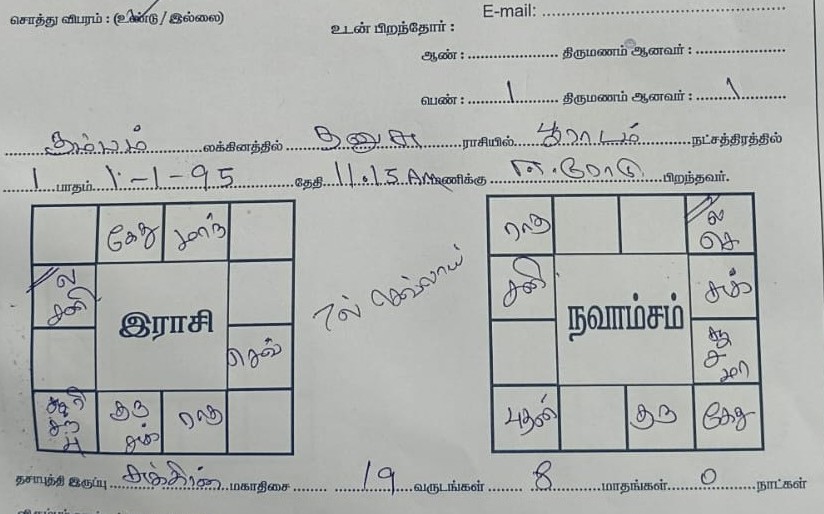 சொத்து விபரம் : (உண்டு / இல்லை)
E-mail:
உடன் பிறந்தோர் :
ஆண் : திருமணம் ஆனவர் :
பெண் : 1 திருமணம் ஆனவர் : 1
கும்பம் லக்கினத்தில் தனுசு ராசியில் பூராடம் நட்சத்திரத்தில்
1 பாதம் 1-1-95 தேதி 11.15 AM மணிக்கு ஈரோடு பிறந்தவர்.
கேது மாந்
ராகு ல செ
ல சனி
7ல் செவ்வாய்
சனி சுக்
இராசி
நவாம்சம்
செவ்
சூ ச மா
சூரி சந் பு
குரு சுக் ராகு
புதன் குரு கேது
தசாபுத்தி இருப்பு சுக்கிரன் மகாதிசை 19 வருடங்கள் 8 மாதங்கள் 0 நாட்கள்